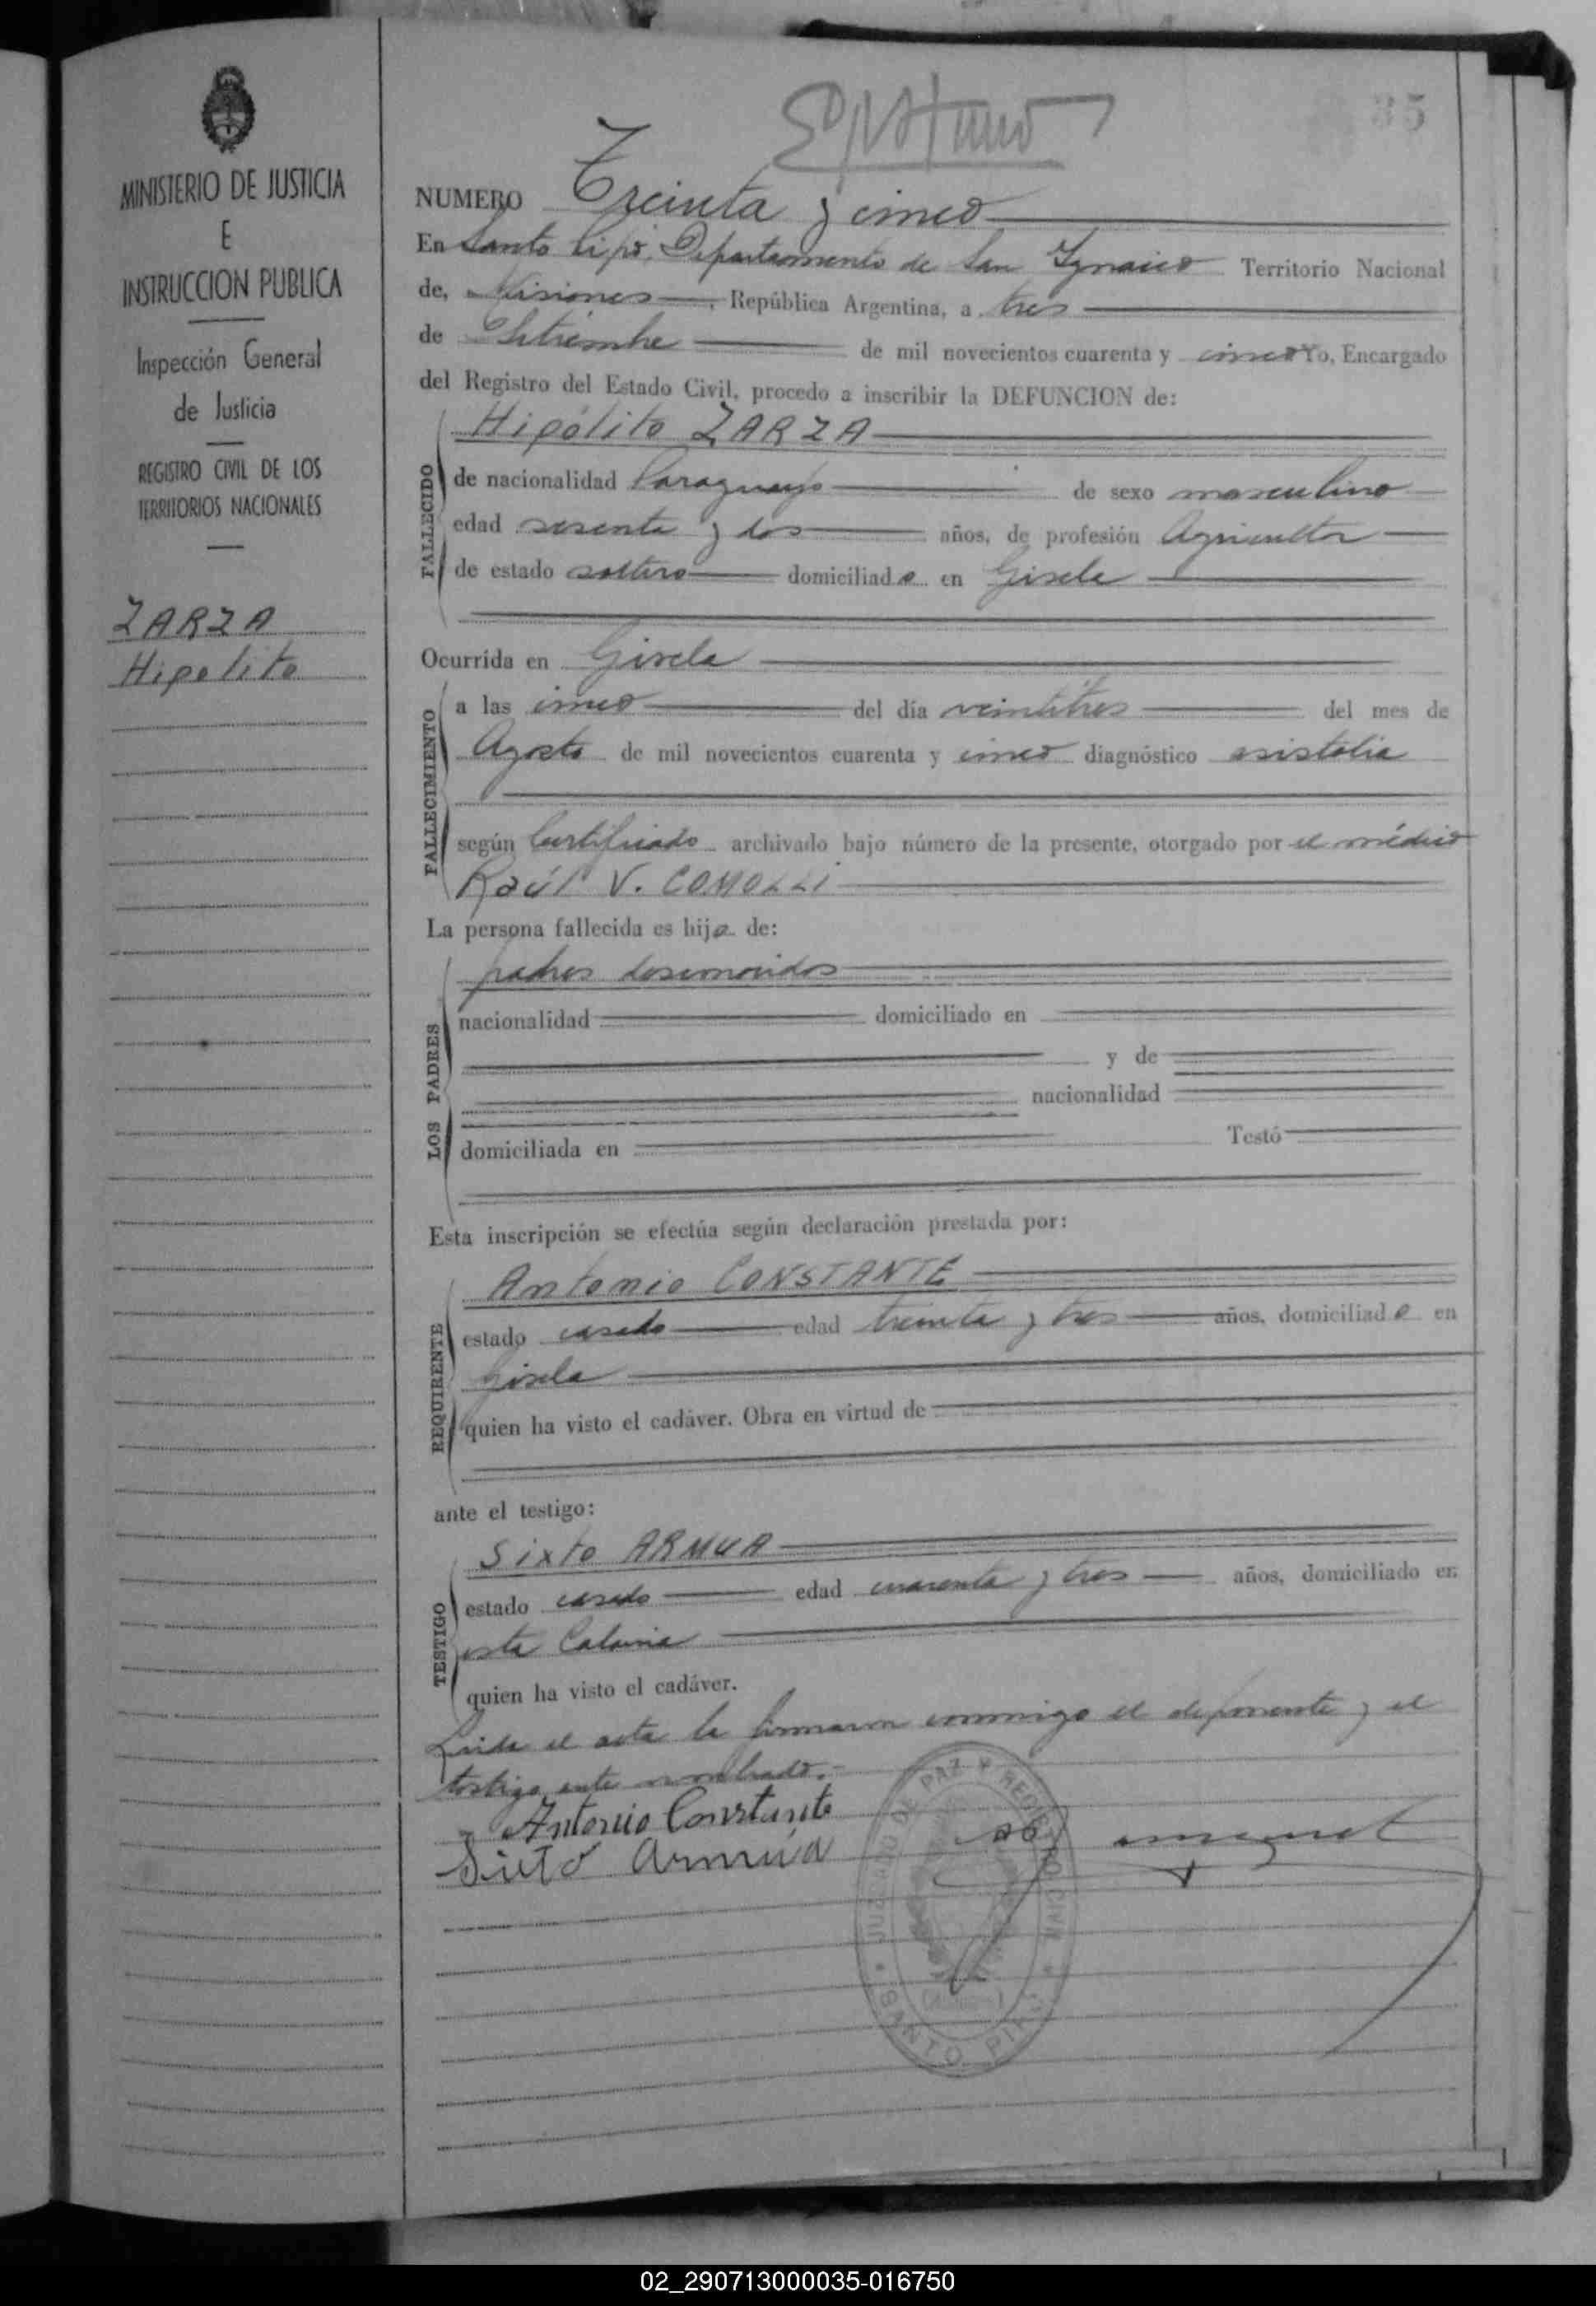 35
MINISTERIO DE JUSTICIA
E
INSTRUCCION PUBLICA
Inspección General
de Justicia
REGISTRO CIVIL DE LOS
TERRITORIOS NACIONALES
ZARZA
Hipolito
NUMERO Treinta y cinco
En Santo Pipó, Departamento de San Ignacio Territorio Nacional
de, Misiones, República Argentina, a tres
de Setiembre de mil novecientos cuarenta y cinco Yo, Encargado
del Registro del Estado Civil, procedo a inscribir la DEFUNCION de:
Hipólito ZARZA
FALLECIDO
de nacionalidad Paraguayo de sexo masculino
edad sesenta y dos años, de profesión Agricultor
de estado soltero domiciliado en Gisela
Ocurrida en Gisela
FALLECIMIENTO
a las cinco del día veintitres del mes de
Agosto de mil novecientos cuarenta y cinco diagnóstico asistolia
según Certificado archivado bajo número de la presente, otorgado por el médico
Raúl V. COMOLLI
La persona fallecida es hijo de:
LOS PADRES
padres desconocidos
nacionalidad domiciliado en
y de
nacionalidad
domiciliada en Testó
Esta inscripción se efectúa según declaración prestada por:
REQUIRENTE
Antonio CONSTANTE
estado casado edad treinta y tres años, domiciliado en
Gisela
quien ha visto el cadáver. Obra en virtud de
ante el testigo:
TESTIGO
Sixto ARMUA
estado casado edad cuarenta y tres años, domiciliado en
esta Colonia
quien ha visto el cadáver.
Leida el acta la firmaron conmigo el deponente y el
testigo ante nombrado.-
Antonio Constante
Sixto Armúa
JUZGADO DE PAZ Y REGISTRO CIVIL
SANTO PIPÓ
02_290713000035-016750